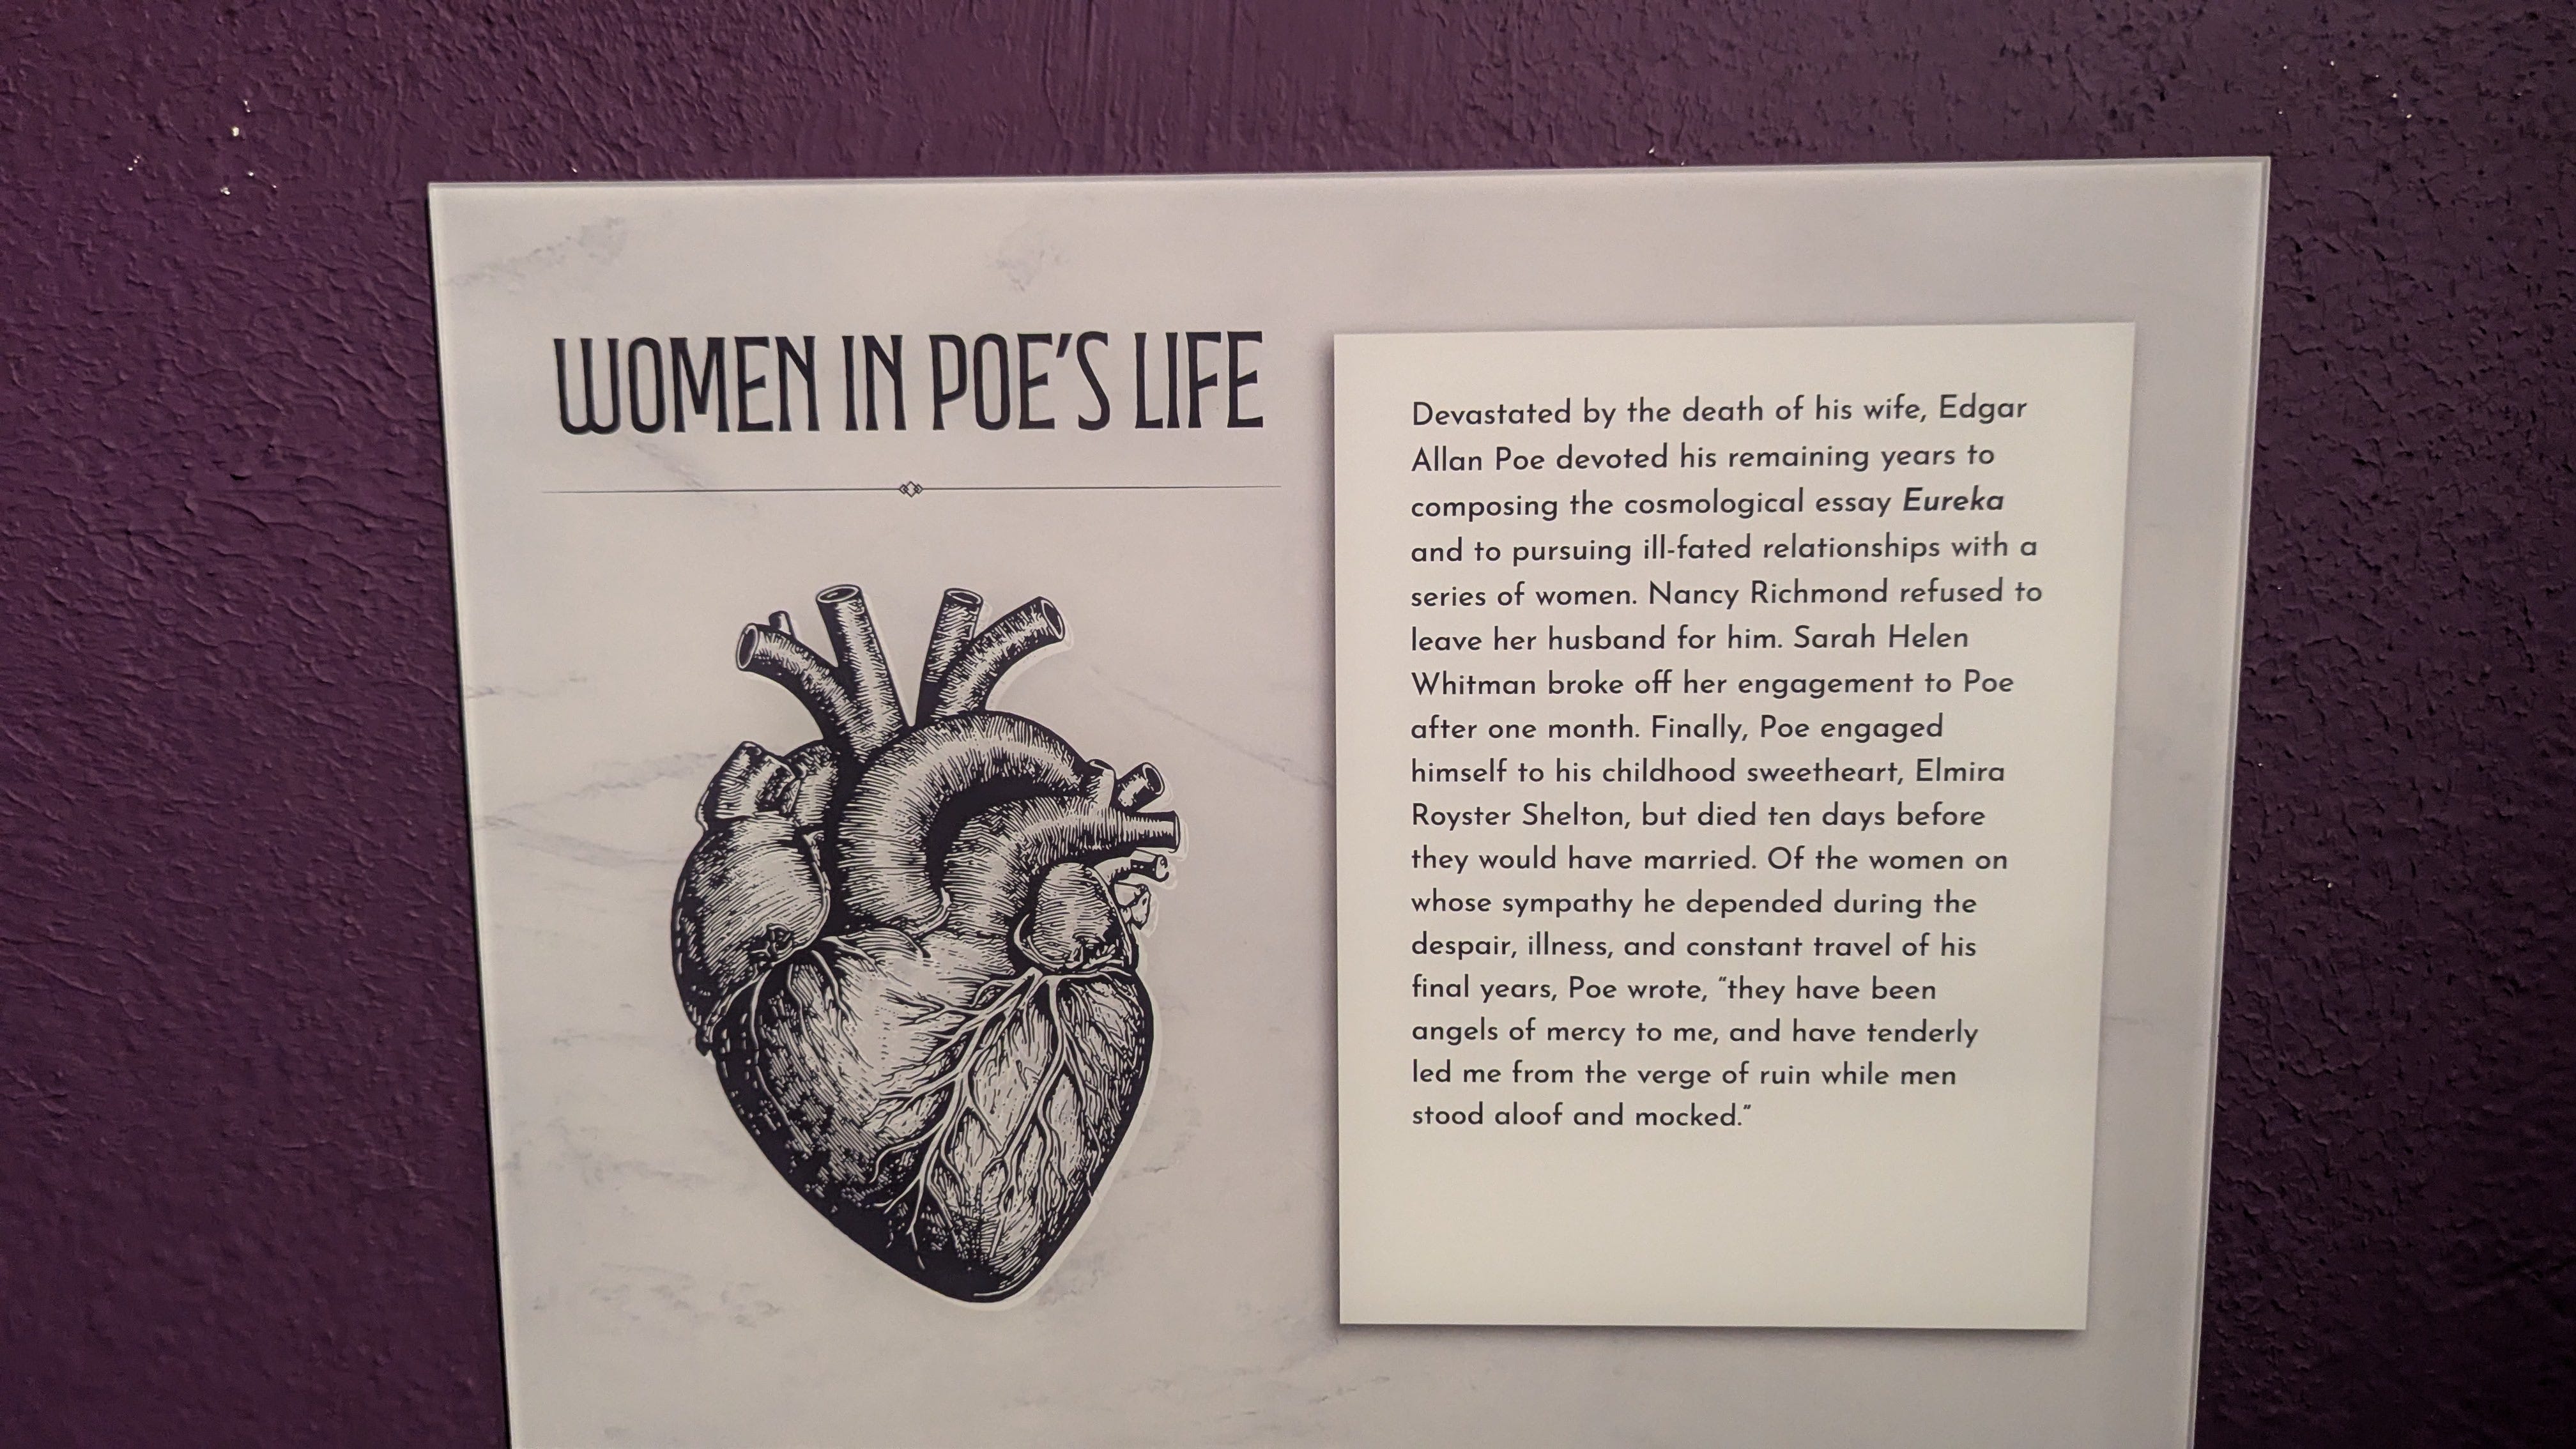 WOMEN IN POE'S LIFE
Devastated by the death of his wife, Edgar
Allan Poe devoted his remaining years to
composing the cosmological essay Eureka
and to pursuing ill-fated relationships with a
series of women. Nancy Richmond refused to
leave her husband for him. Sarah Helen
Whitman broke off her engagement to Poe
after one month. Finally, Poe engaged
himself to his childhood sweetheart, Elmira
Royster Shelton, but died ten days before
they would have married. Of the women on
whose sympathy he depended during the
despair, illness, and constant travel of his
final years, Poe wrote, “they have been
angels of mercy to me, and have tenderly
led me from the verge of ruin while men
stood aloof and mocked.”